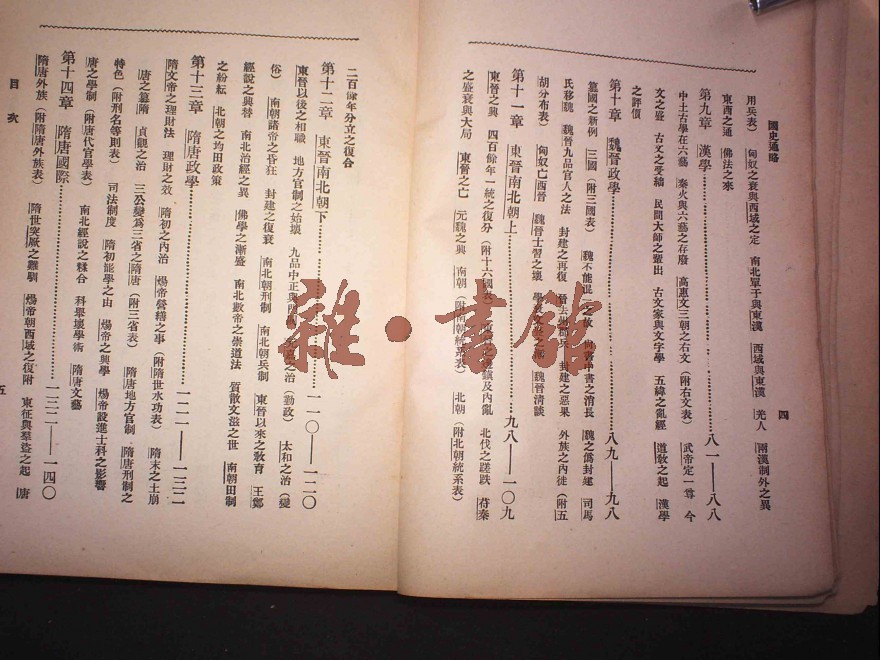 國史通略
四
用兵表） 匈奴之衰與西域之定 南北單于與東漢 西域與東漢 羌人 兩漢制外之異
東西之通 佛法之來
第九章 漢學 八一——八八
中土古學在六藝 秦火與六藝之存廢 高惠文三朝之右文（附右文表） 武帝定一尊 今
文之盛 古文之受絀 民間大師之輩出 古文家與文字學 五緯之亂經 道敎之起 漢學
之評價
第十章 魏晉政學 八九——九八
篡國之新例 三國（附三國表） 魏不能混一之故 尙書中書之消長 魏之僞封建 司馬
氏移魏 魏晉九品官人之法 封建之再復 晉去州郡兵 封建之惡果 外族之內徙（附五
胡分布表） 匈奴亡西晉 魏晉士習之壞 魏晉淸談
第十一章 東晉南北朝上 九八——一〇九
東晉之興 四百餘年一統之復分（附十六國表） 及內亂 北伐之蹉跌 苻秦
之盛衰與大局 東晉之亡 元魏之興 南朝（附南朝統系表） 北朝（附北朝統系表）
二百餘年分立之復合
第十二章 東晉南北朝下 一一〇——一二〇
東晉以後之相職 地方官制之始壞 九品中正與 之治（勤政） 太和之治（變
俗） 南朝諸帝之昏狂 封建之復衰 南北朝刑制 南北朝兵制 東晉以來之敎育 王鄭
經說之興替 南北治經之異 佛學之漸盛 南北數帝之崇道法 質散文滋之世 南朝田制
之紛紜 北朝之均田政策
第十三章 隋唐政學 一二一——一三二
隋文帝之理財法 理財之效 隋初之內治 煬帝營繕之事（附隋世水功表） 隋末之土崩
唐之篡隋 貞觀之治 三公變爲三省之隋唐（附三省表） 隋唐地方官制 隋唐刑制之
特色（附刑名等則表） 司法制度 隋初毀學之由 煬帝之興學 煬帝設進士科之影響
唐之學制（附唐代官學表） 南北經說之糅合 科舉壞學術 隋唐文藝
第十四章 隋唐國際 一三二——一四〇
隋唐外族（附隋唐外族表） 隋世突厥之難馴 煬帝朝西域之復附 東征與羣盜之起 唐
目次
五
雜·書館